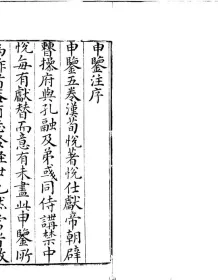 申鑒注序
申鑒五卷漢荀悅著悅仕獻帝朝辟
曹操府與孔融及弟彧同侍講禁中
悅每有獻替而意有未盡此申鑒所